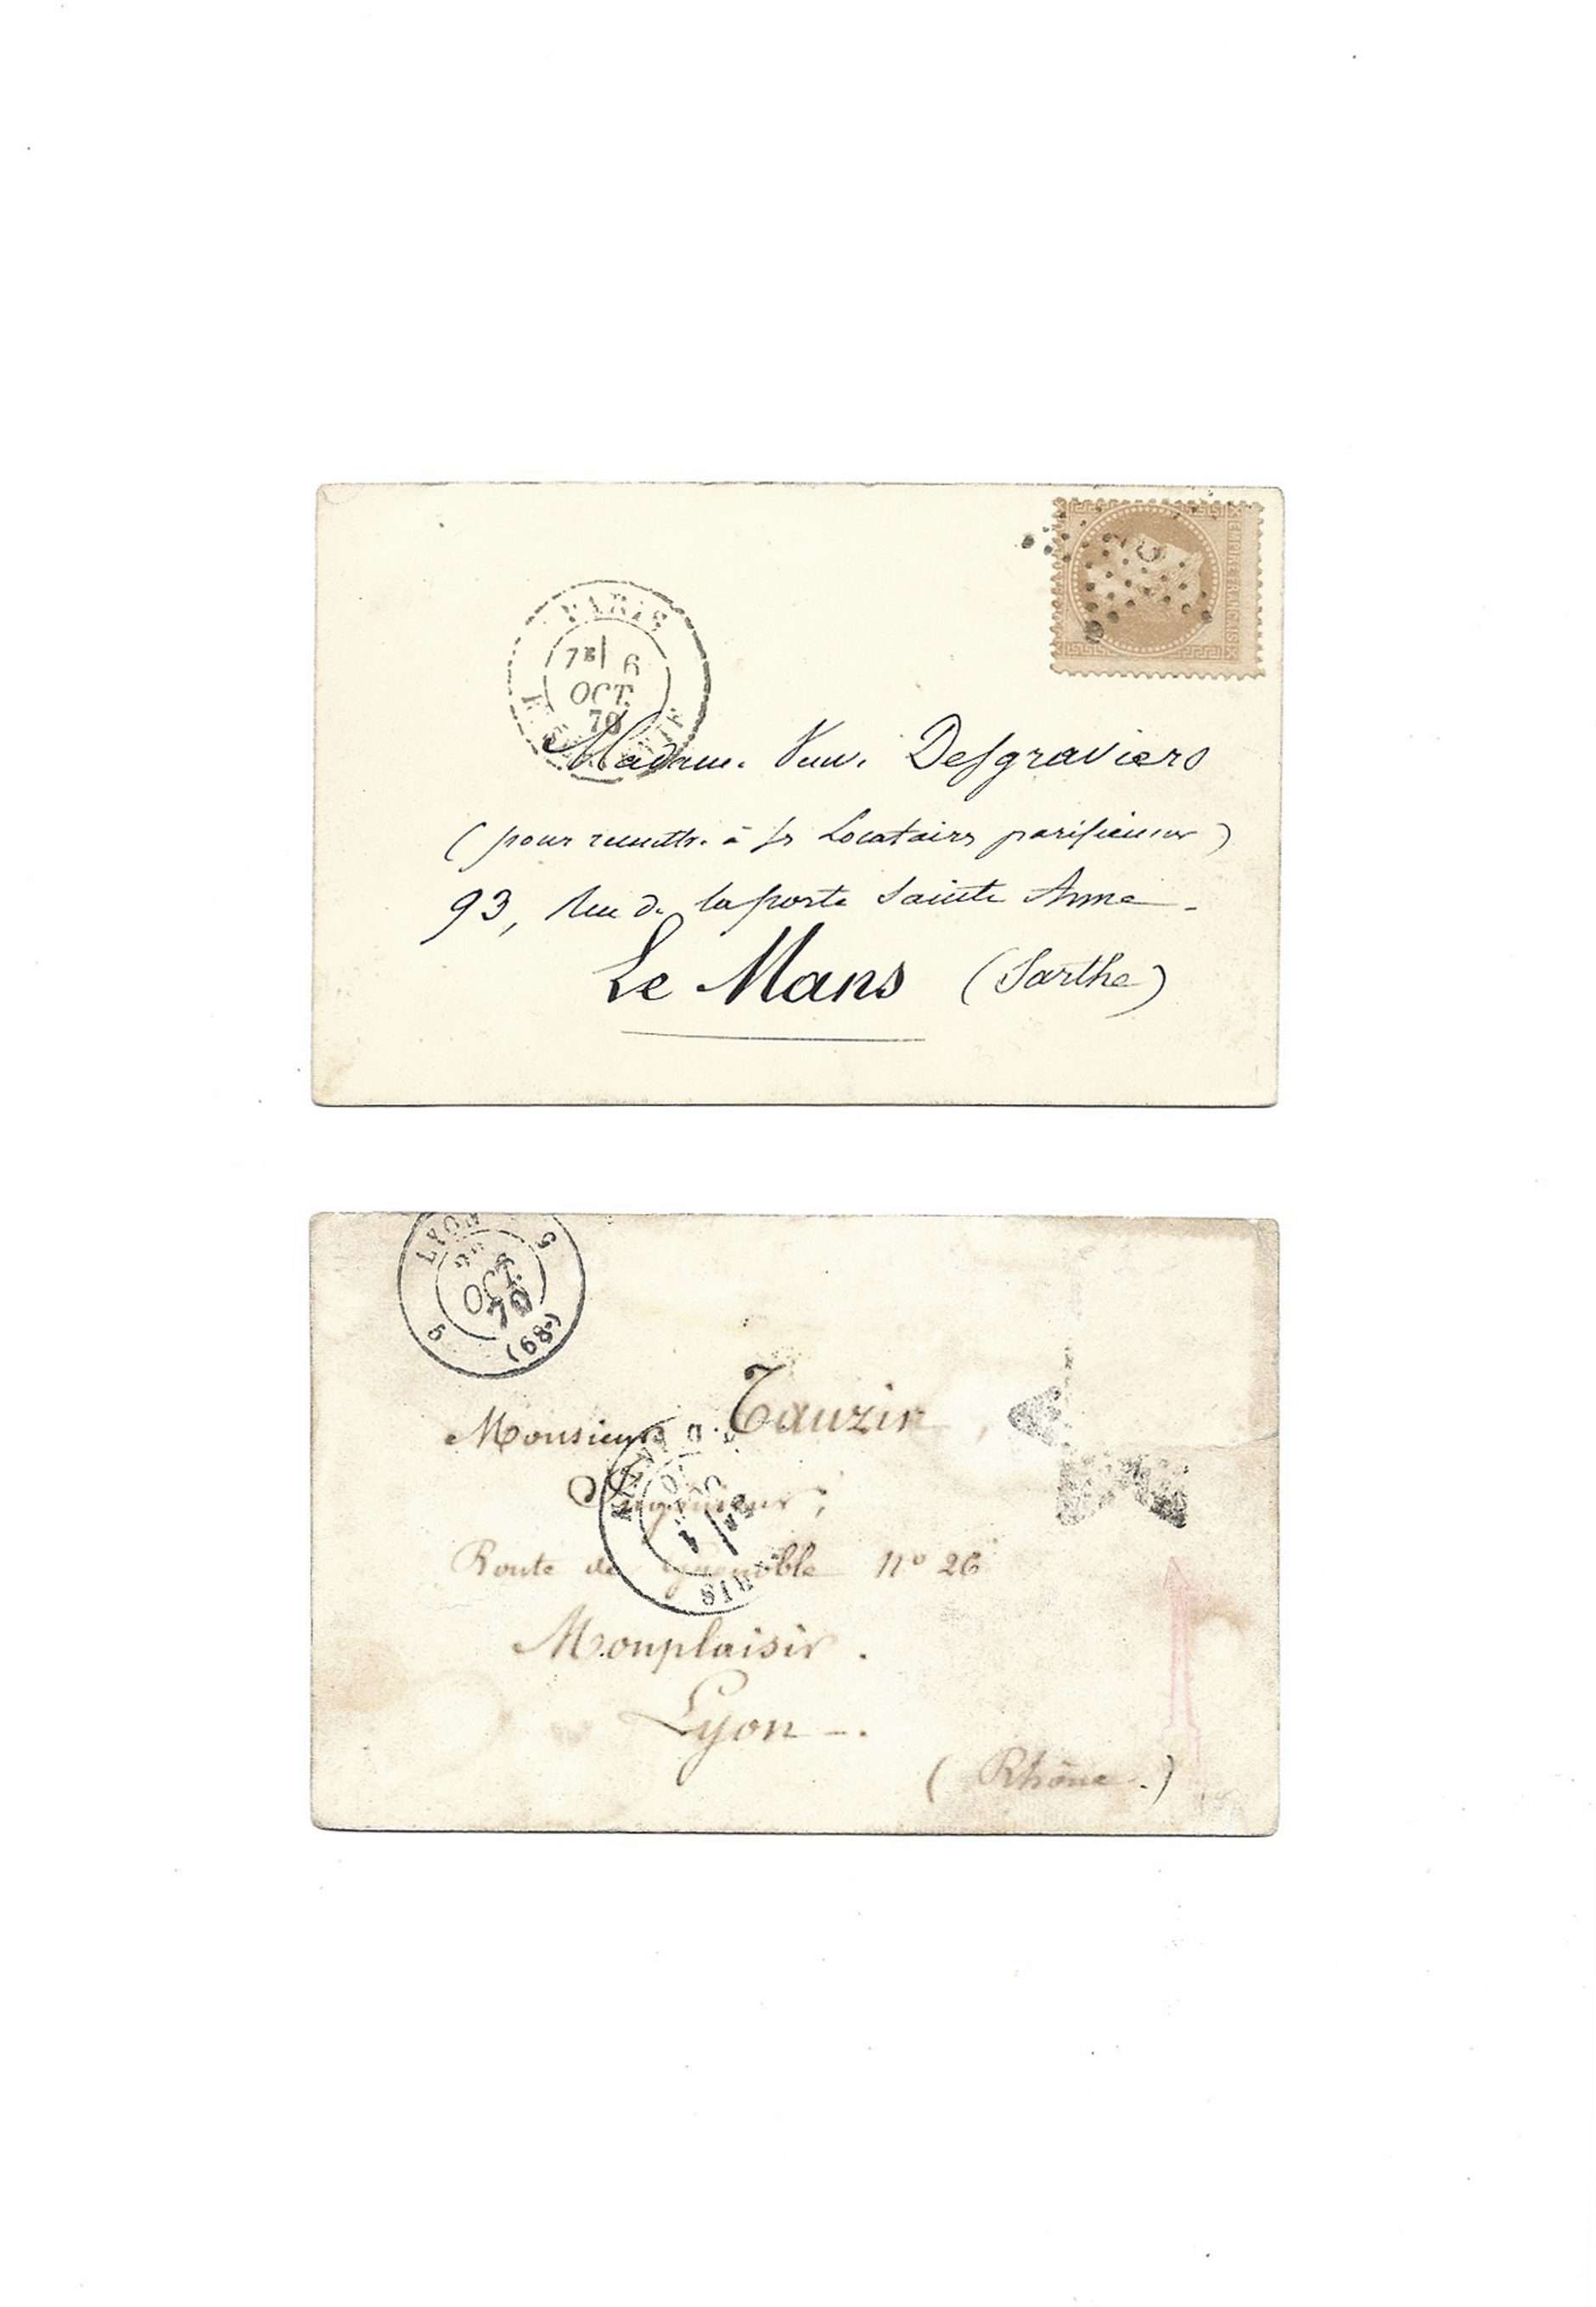 PARIS
7E 6
OCT.
70
EMPIRE FRANÇAIS
Madame Veuve Desgraviers
(pour remettre à ses Locataires parisiennes)
93, Rue de la porte Sainte Anne -
Le Mans (Sarthe)
LYON
5 5
OCT.
70
(68)
Monsieur Tauzin,
Ingénieur,
Route de Grenoble n° 26
PARIS
Monplaisir.
Lyon -.
(Rhône.)